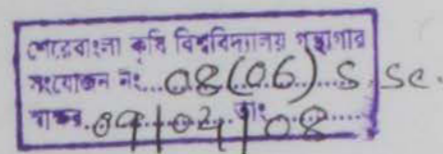 শেরেবাংলা কৃষি বিশ্ববিদ্যালয় গন্থাগার
সংযোজন নং...08(06) S.Sc.
স্বাক্ষর.09/04/08